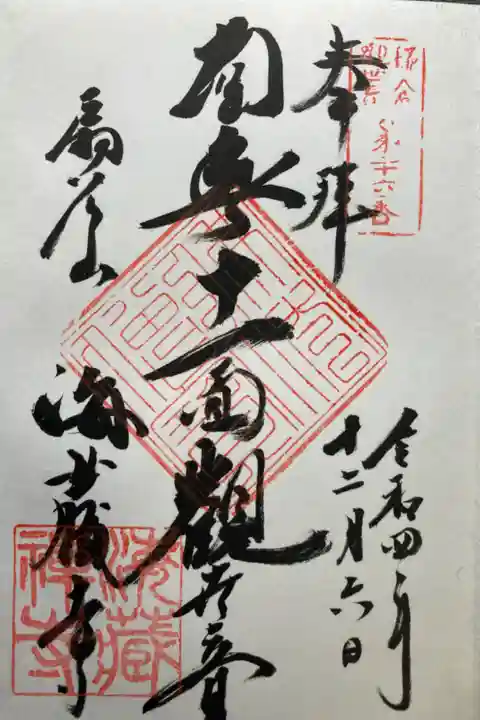 鎌倉
観世音
第廿六番
奉拝
令和四年
十二月六日
南無十一面觀世音
扇谷山
海蔵寺
海藏
禅寺